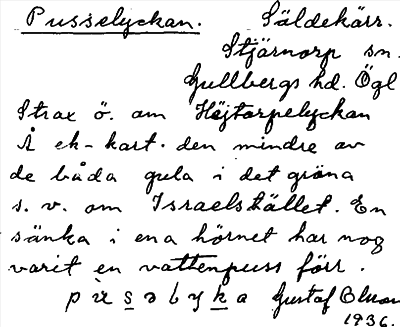 Pusselyckan. Säldekärr.
Stjärnorp sn.
Gullbergs hd. Ögl
Strax ö. om Höjtorpelyckan
Å ek-kart. den mindre av
de båda gula i det gröna
s. v. om Israelstället. En
sänka i ena hörnet har nog
varit en vattenpuss förr.
Gustaf Olson
1936.